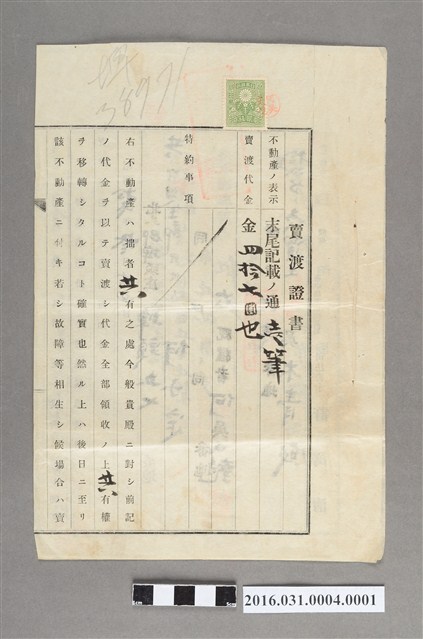 38971
賣渡證書
不動產ノ表示 末尾記載ノ通 壹筆
賣渡代金 金四拾七圓也
特約事項
右不動產ハ拙者共有之處今般貴殿ニ對シ前記
ノ代金ヲ以テ賣渡シ代金全部領收ノ上共有權
ヲ移轉シタルコト確實也然ル上ハ後日ニ至リ
該不動產ニ付キ若シ故障等相生シ候場合ハ賣
5cm
5cm
2016.031.0004.0001